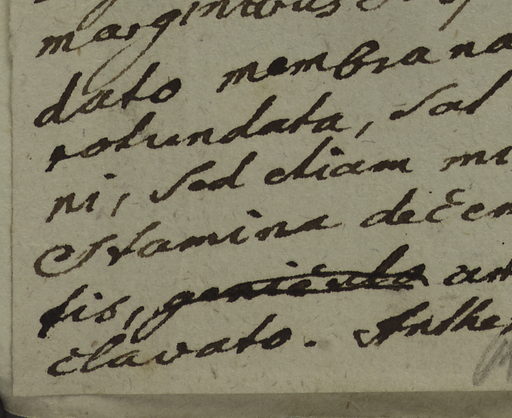 marginibus
dato membrana
rotundata, sal
ni, sed etiam mi
Stamina decem
tis, geniculo an
clavato. Anthe